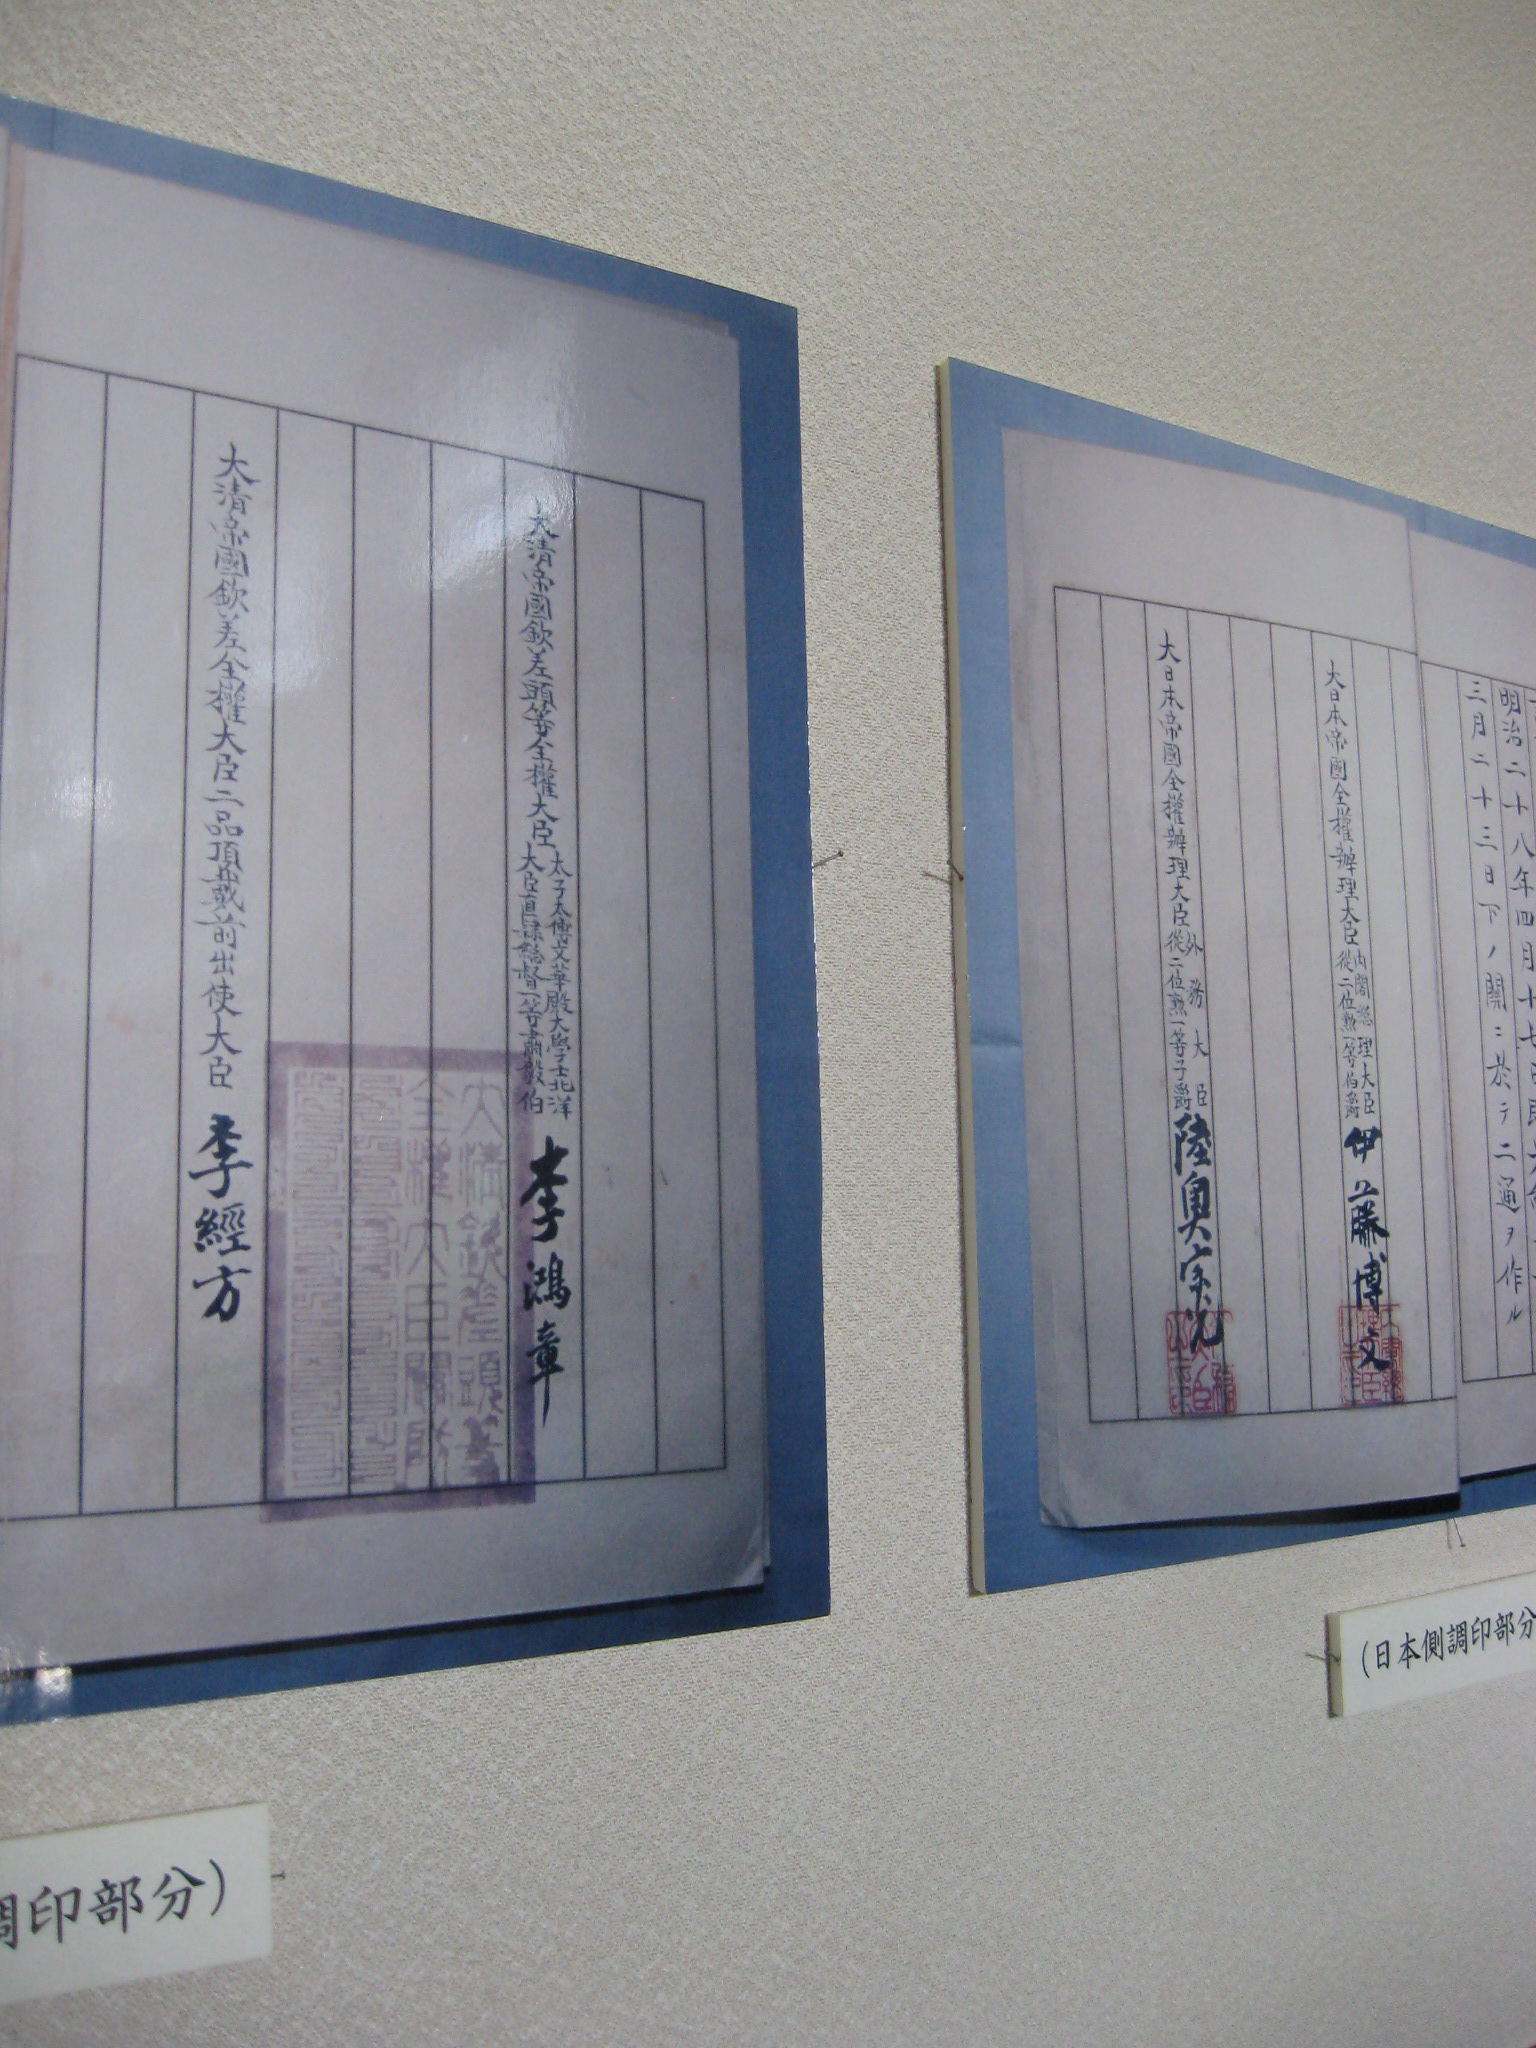 明治二十八年四月十七
三月二十三日下ノ關ニ於テ二通ヲ作ル
大日本帝國全權辦理大臣
内閣總理大臣
從二位勲一等伯爵
伊藤博文
大日本帝國全權辦理大臣
外務大臣
從二位勲一等子爵
陸奥宗光
(日本側調印部分
大清帝國欽差頭等全權大臣
太子太傅文華殿大學士北洋
大臣直隷總督一等肅毅伯
李鴻章
大清欽差頭等
全權大臣關防
大清帝國欽差全權大臣二品頂戴前出使大臣
李經方
調印部分)